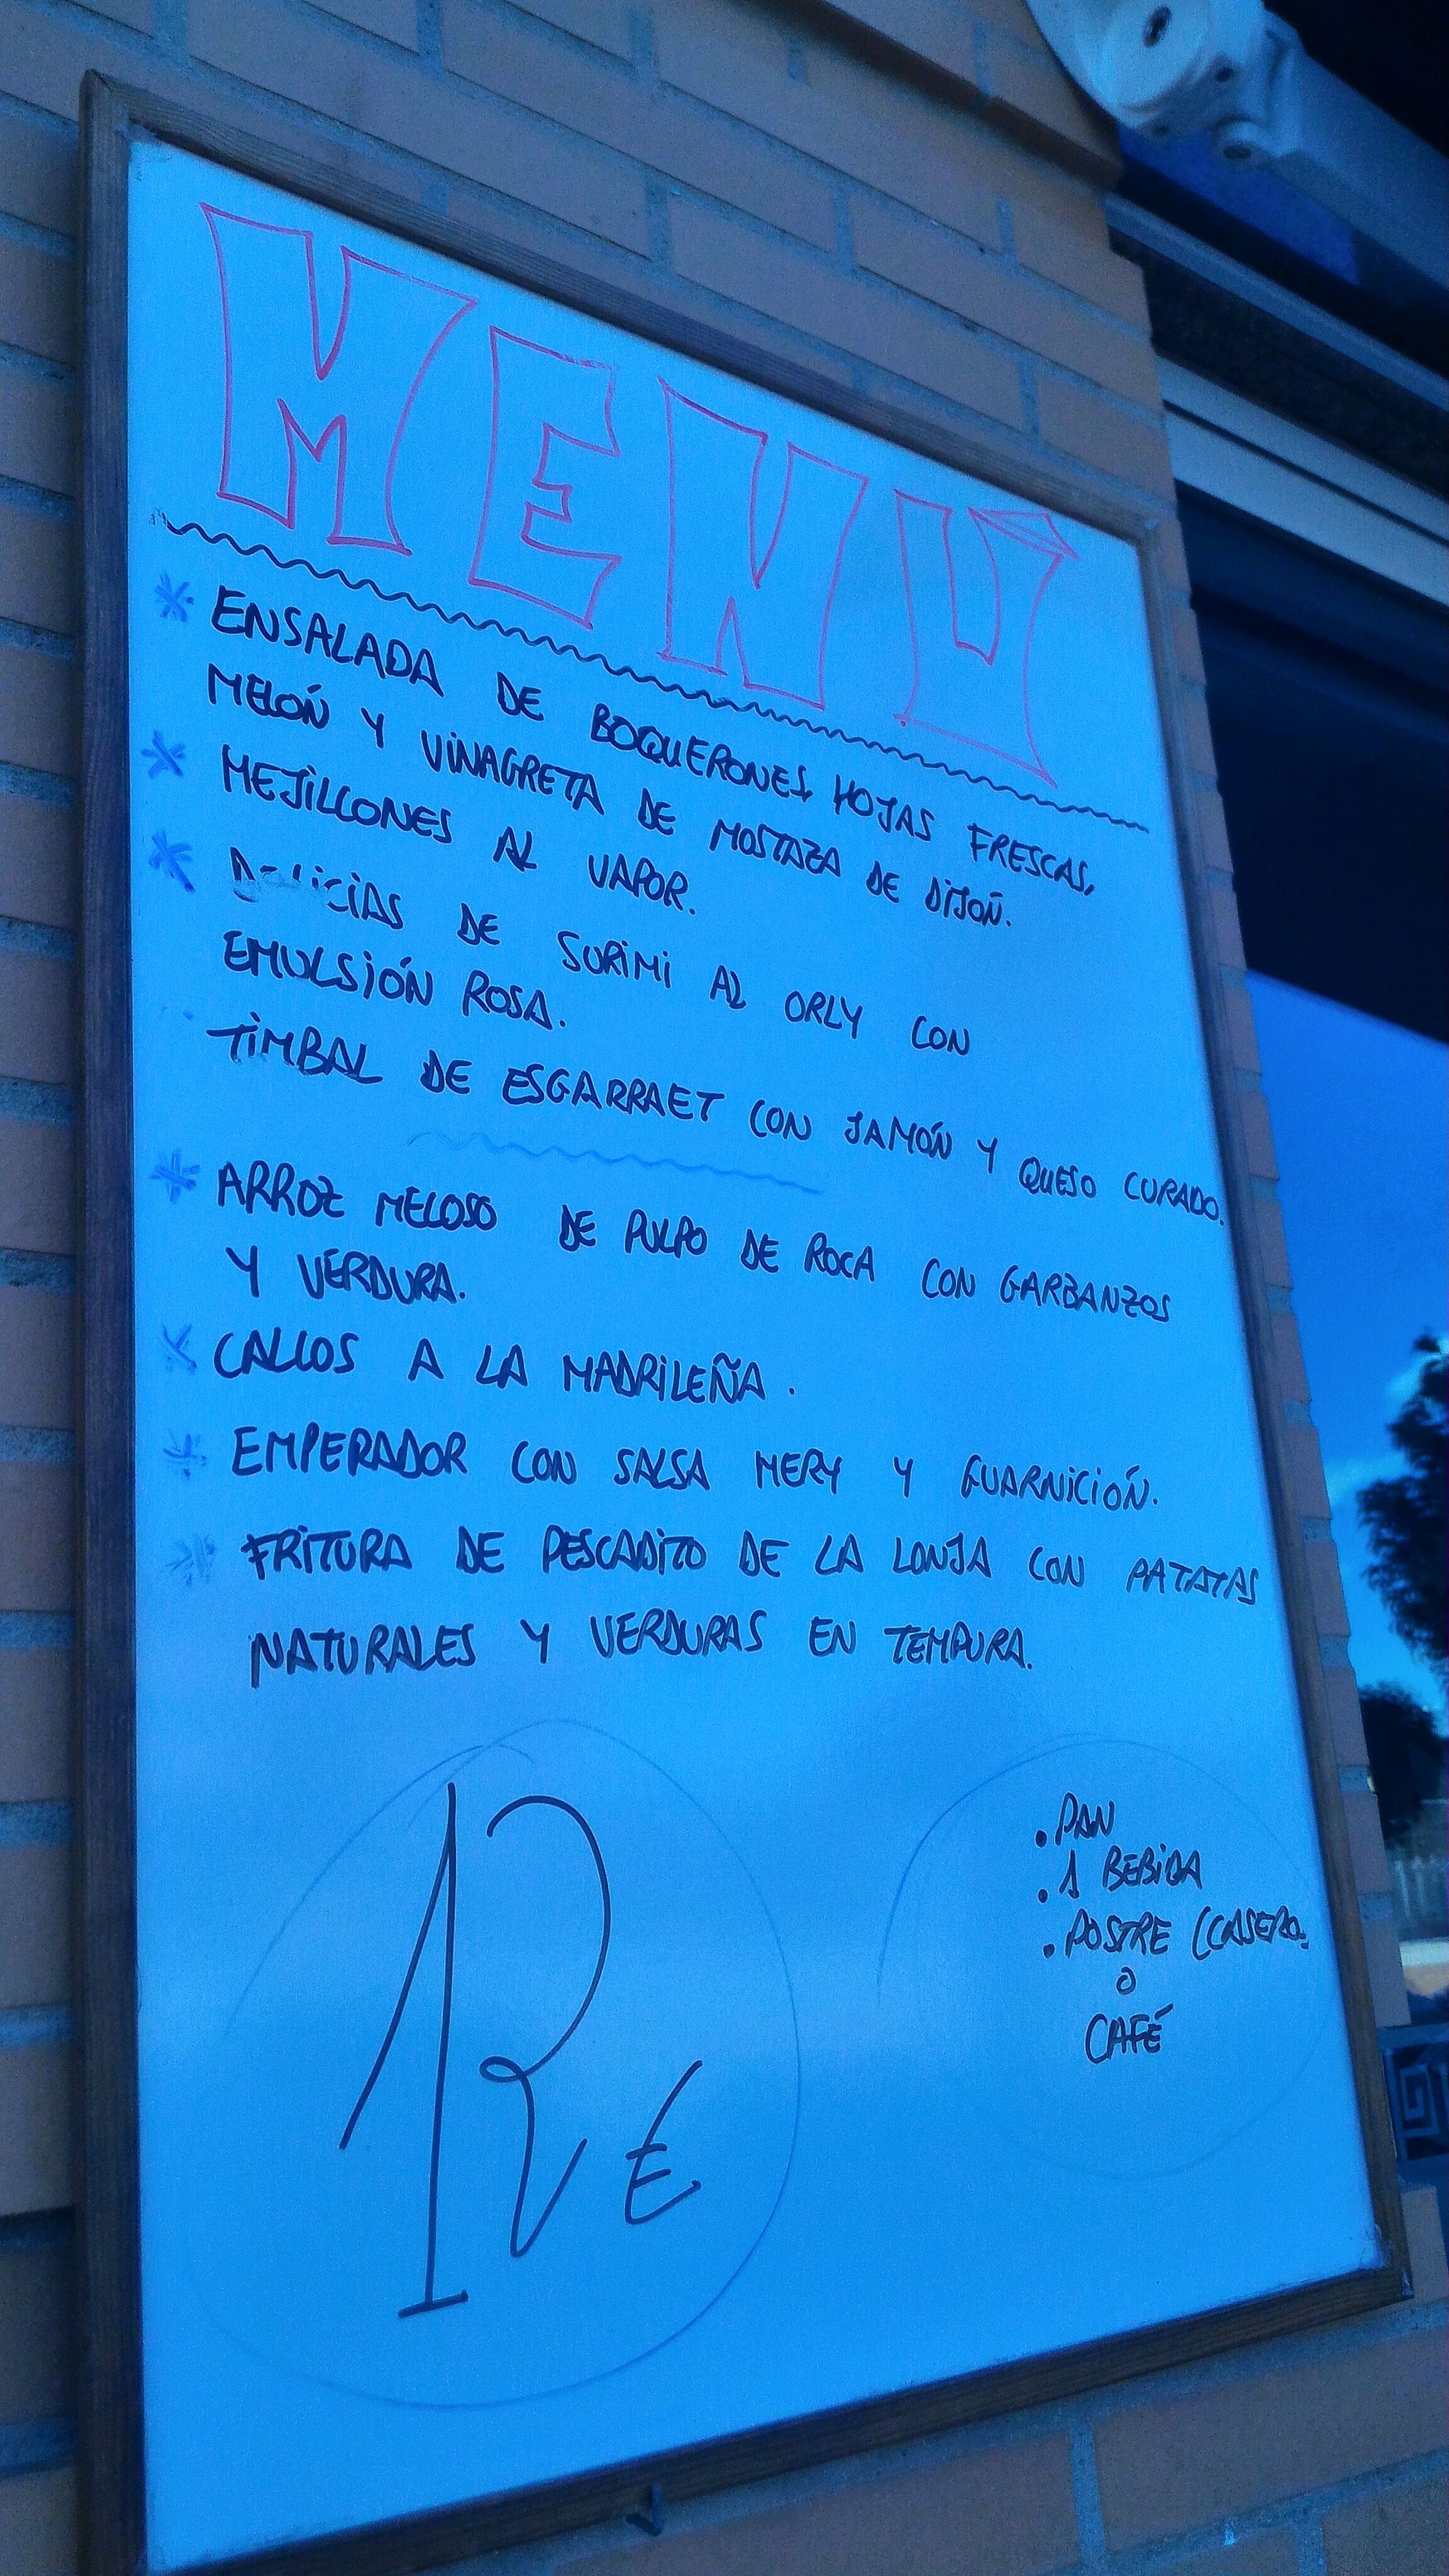 MENÚ
* ENSALADA DE BOQUERONES, HOJAS FRESCAS,
MELÓN Y VINAGRETA DE MOSTAZA DE DIJOÑ.
* MEJILLONES AL VAPOR.
* DELICIAS DE SURIMI AL ORLY CON
EMULSIÓN ROSA.
TIMBAL DE ESGARRAET CON JAMÓN Y QUESO CURADO.
* ARROZ MELOSO DE PULPO DE ROCA CON GARBANZOS
Y VERDURA.
* CALLOS A LA MADRILEÑA.
* EMPERADOR CON SALSA MERY Y GUARNICIÓN.
* FRITURA DE PESCADITO DE LA LONJA CON PATATAS
NATURALES Y VERDURAS EN TEMPURA.
12 €
. PAN
. 1 BEBIDA
. POSTRE (CASERO)
O
CAFÉ